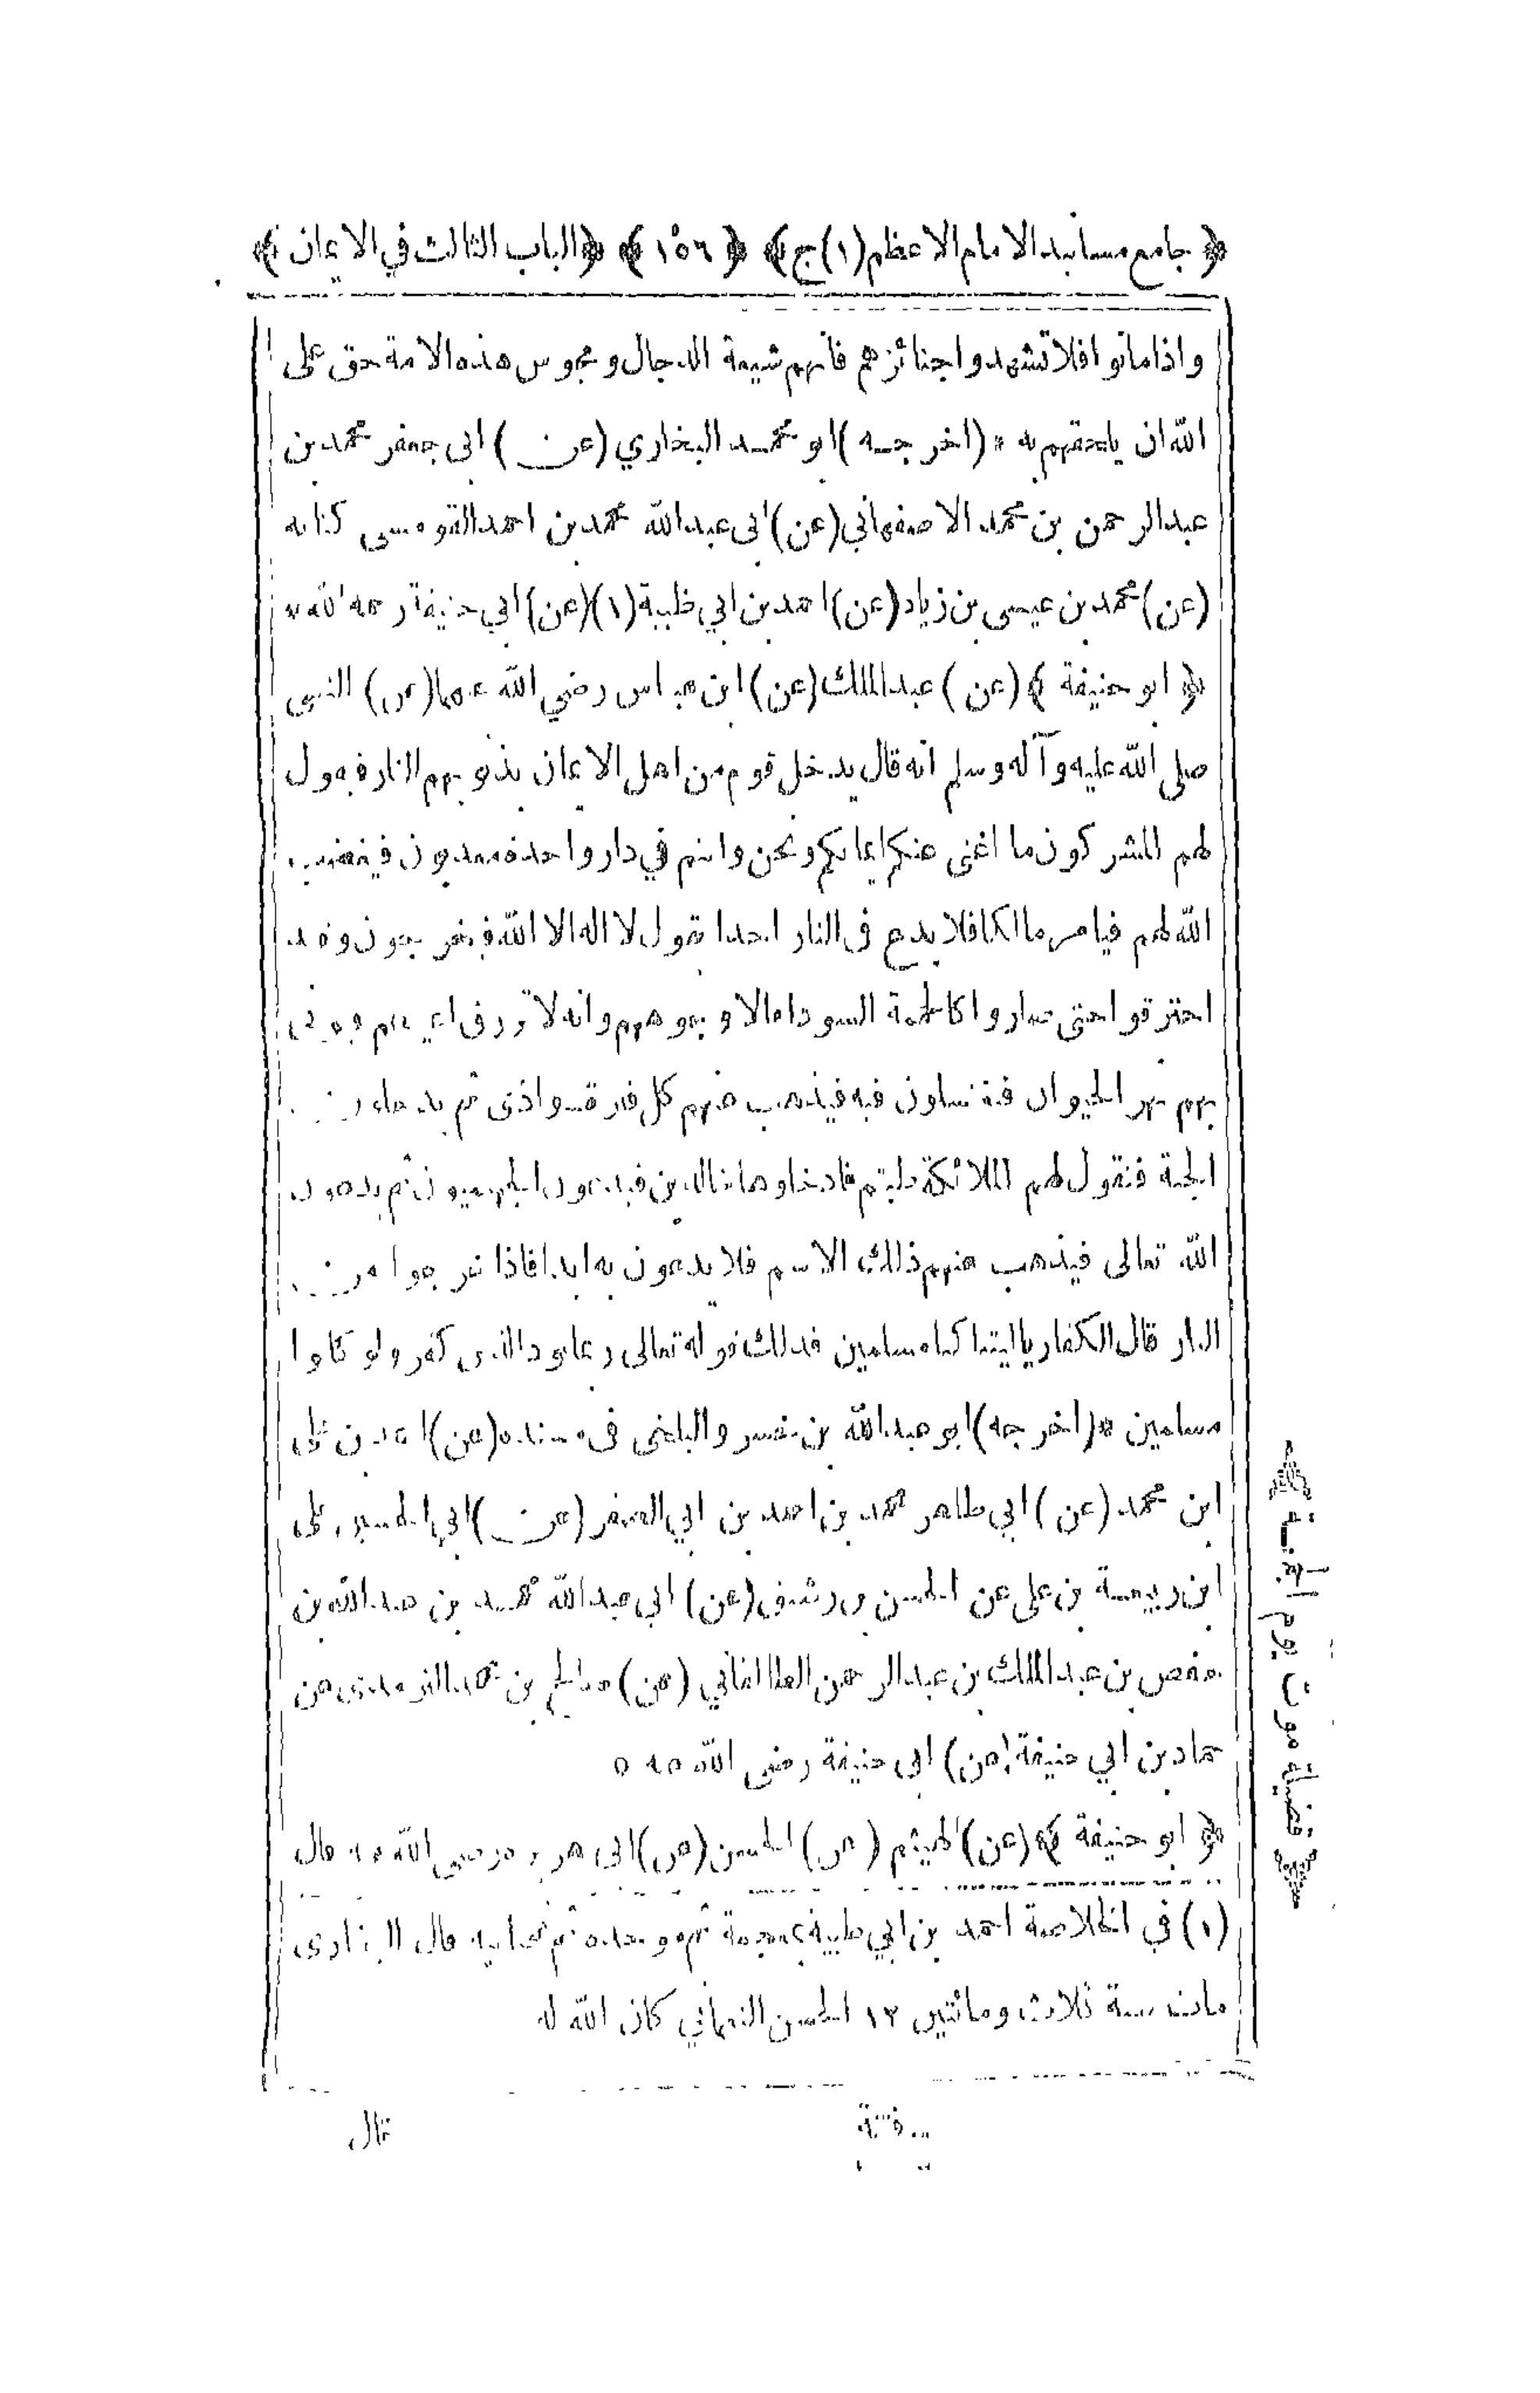 ﴿ جامع مسانيد الامام الاعظم (١) ج ﴾ ﴿ ١٥٦ ﴾ ﴿ الباب الثالث في الايمان ﴾
واذا ماتوا فلا تشهدوا جنائزهم فانهم شيعة الدجال ومجوس هذه الامة حق على
الله ان يلحقهم به * (اخرجه) ابو محمد البخاري (عن) ابى جعفر محمد بن
عبد الرحمن بن محمد الاصفهاني (عن) ابى عبد الله محمد بن احمد القومسى كتابه
(عن) محمد بن عيسى بن زياد (عن) احمد بن ابي ظبية (١) (عن) ابي حنيفة رحمه الله *
﴿ ابو حنيفة ﴾ (عن) عبد الملك (عن) ابن عباس رضي الله عنهما (عن) النبي
صلى الله عليه وآله وسلم انه قال يدخل قوم من اهل الايمان بذنوبهم النار فيقول
لهم المشركون ما اغنى عنكم ايمانكم ونحن وانتم في دار واحدة معذبون فيغضب
الله لهم فيامر مالكا فلا يدع فى النار احدا يقول لا اله الا الله فيخرجون وقد
احترقوا حتى صاروا كالحممة السوداء الا وجوههم وانه لا تزرق اعينهم
بهم نهر الحيوان فيغتسلون فيه فيذهب عنهم كل فترة واذى ثم يدخلون
الجنة فتقول لهم الملائكة طبتم فادخلوها خالدين فيدعون الجهنميون ثم يدعون
الله تعالى فيذهب عنهم ذلك الاسم فلا يدعون به ابدا فاذا خرجوا من
النار قال الكفار يا ليتنا كنا مسلمين فذلك قوله تعالى ربما يود الذين كفروا لو كانوا
مسلمين * (اخرجه) ابو عبد الله بن خسرو البلخى فى مسنده (عن) احمد بن على
ابن محمد (عن) ابي طاهر محمد بن احمد بن ابي الصقر (عن) ابي الحسين على
ابن ربيعة بن على عن الحسن بن رشيق (عن) ابي عبد الله محمد بن عبد الله بن
حفص بن عبد الملك بن عبد الرحمن الطالقاني (عن) صالح بن محمد الترمذي عن
حماد بن ابي حنيفة (عن) ابى حنيفة رضى الله عنه *
﴿ ابو حنيفة ﴾ (عن) الهيثم (عن) الحسن (عن) ابى هريرة رضى الله عنه قال
(١) في الخلاصة احمد بن ابي ظبية بمعجمة ثم موحدة ثم تحتانية قال البخارى
مات سنة ثلاث ومائتين ١٢ الحسن النعماني كان الله له
قال
﴿ فضيلة موت يوم الجمعة ﴾